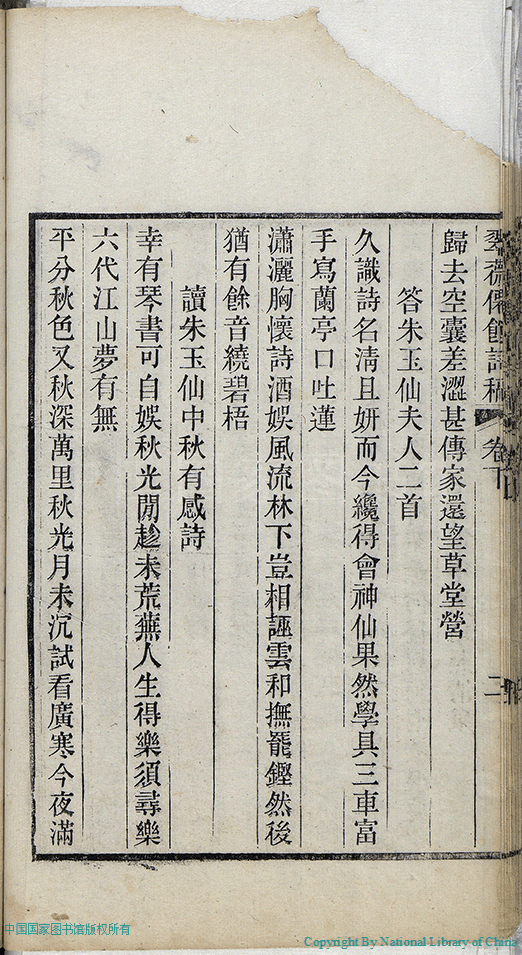 翠薇僊館詩稿 卷下 二
歸去空囊差澀甚傳家還望草堂營
答朱玉仙夫人二首
久識詩名清且妍而今纔得會神仙果然學具三車富
手寫蘭亭口吐蓮
瀟灑胸懷詩酒娛風流林下豈相誣雲和撫罷鏗然後
猶有餘音繞碧梧
讀朱玉仙中秋有感詩
幸有琴書可自娛秋光閒趁未荒蕪人生得樂須尋樂
六代江山夢有無
平分秋色又秋深萬里秋光月未沉試看廣寒今夜滿
中国国家图书馆版权所有
Copyright By National Library of China